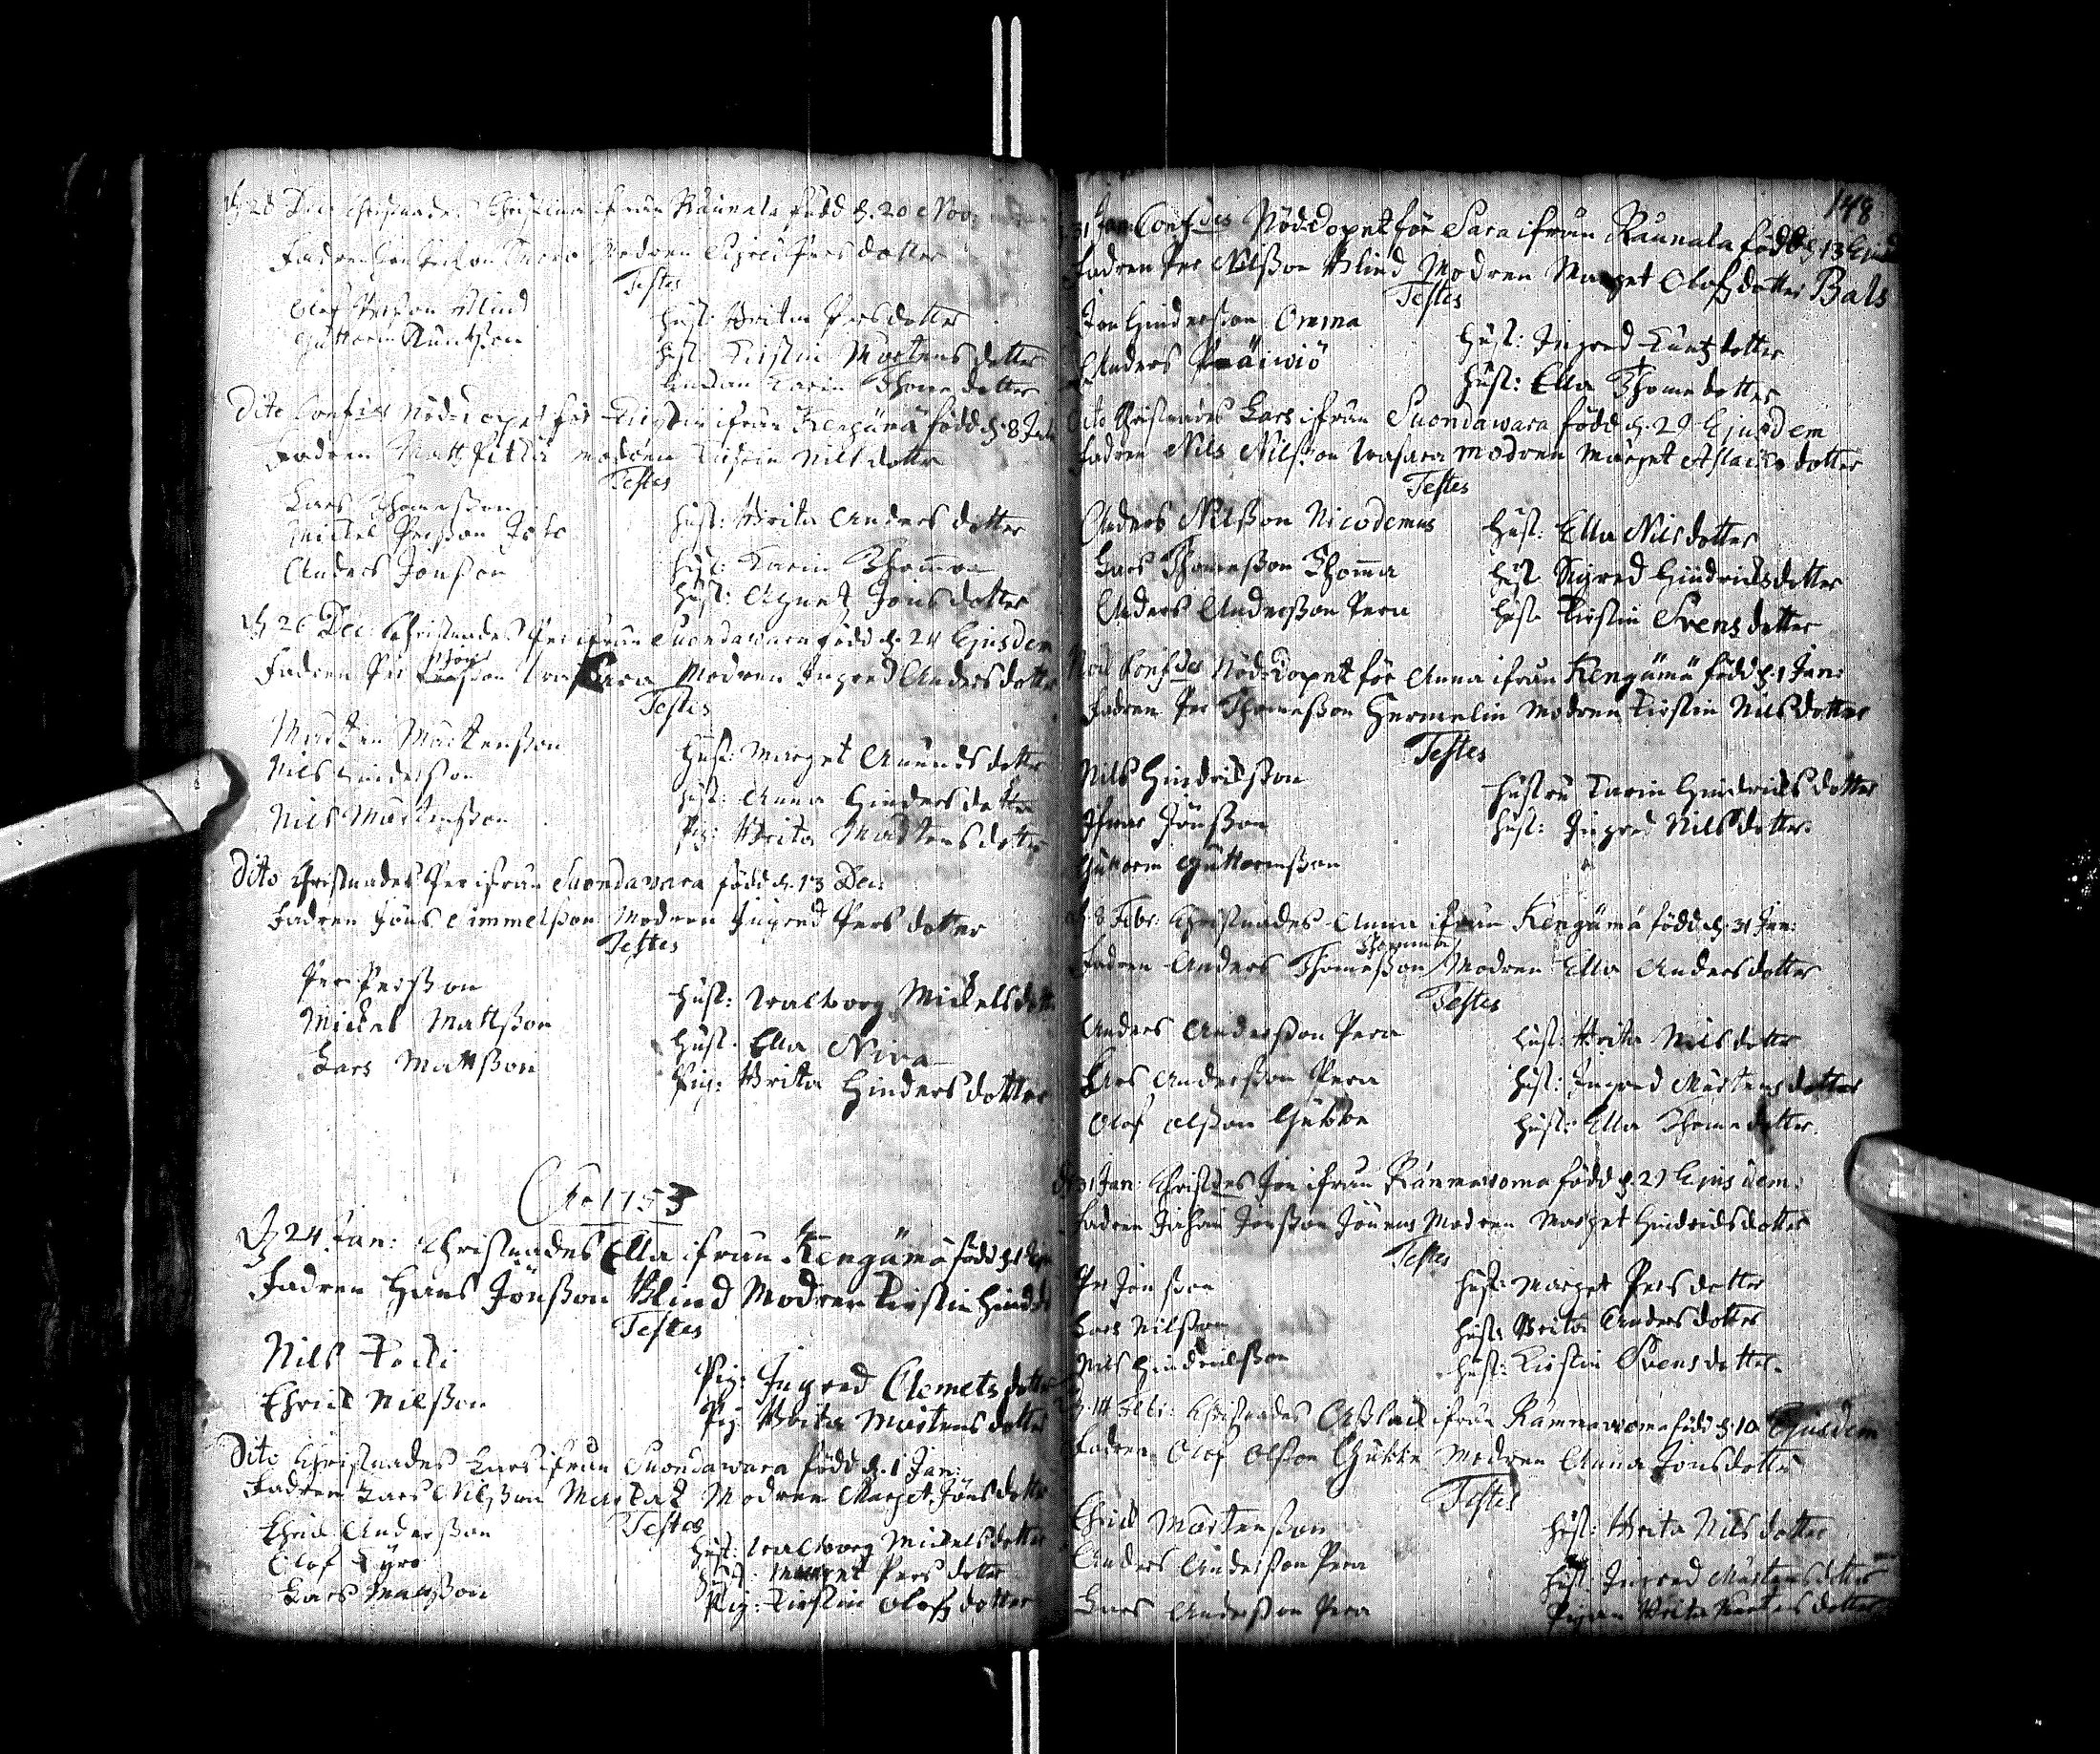 d. 26 Dec: Christnades Christina ifrån Raunala född d. 20 Nov:
Fadren Modren Sigred Pers dotter
Testes
Olof Blind
Guttorm Kuutsson
Hust: Brita Persdotter
Hust: Kirstin Mortens dotter
Karin Thome dotter
Dito Confdes Nöd-dopet för Kirstin ifrån Kengämä född d. 8
Fadren Matts Modren Kirstin Nils dotter
Testes
Lars Thomeßon
Mickel Perßon
Anders Jonßon
Hust: Brita Anders dotter
Hust: Karin Thomma
Hust: Agnet Jons dotter
d. 26 Dec: Christnades Per ifrån Suondawara född d. 24 Ejusdem
Fadren Per Wasara Modren Ingred Anders dotter
Testes
Mårten Mårtenßon
Nils Hinderßon
Nils Mårtenßon
Hust: Marget Anunds dotter
Hust: Anna Hinders dotter
Pig: Brita Mårtens dotter
Dito Christnades Per ifrån Suondawara född d. 13 Dec:
Fadren Jöns Kimmelßon Modren Ingred Pers dotter
Testes
Per Perßon
Mickel Mattßon
Lars Mattßon
Hust: Walborg Mickels dott
Hust: Ella Niva
Pig: Brita Hinders dotter
Ao 1753
d. 24 Jan: Christnades Ella ifrån Kengämä född d. 1
Fadren Hans Jönßon Blind Modren Kirstin Hind
Testes
Nils
Ehrick Nilßon
Pig: Ingred Clemets dotter
Pig: Brita Mårtens dotter
Dito Christnades Lars ifrån Suondawara född d. 1 Jan:
Fadren Lars Nilßon Modren Marget Jöns dotter
Testes
Ehrick Anderßon
Olof
Lars Mattßon
Hust: Walborg Mickels dotter
Hust: Marget Pers dotter
Pig: Kirstin Olofs dotter
148
31 Jan: Confdes Nöddopet för Sara ifrån Raunala född d. 13 Ejusd
Fadren Per Nilßon Blind Modren Marget Olofs dotter Bals
Testes
Jon Hinderßon Omma
Anders Präiwiö
Hust: Ingred Kuuts dotter
Hust: Ella Thome dotter
Dito Christnades Lars ifrån Suondawara född d. 29 Ejusdem
Fadren Nils Nilßon Wasara Modren Marget Aslacks dotter
Testes
Anders Nilßon Nicodemus
Lars Thomeßon Thomma
Anders Anderßon Pera
Hust: Ella Nils dotter
Hust: Sigred Hindricks dotter
Hust: Kirstin Svens dotter
Confdes Nöd-dopet för Anna ifrån Kengämä född d. 1 Jan:
Fadren Per Thomeßon Hermelin Modren Kirstin Nils dotter
Testes
Nils Hindrickßon
Ifvar Jönßon
Guttorm Guttormßon
Hustru Karin Hindricks dotter
Hust: Ingred Nils dotter
d. 8 Febr: Christnades Anna ifrån Kengämä född d. 31 Jan:
Thomma
Fadren Anders Thomeßon Modren Ella Anders dotter
Testes
Anders Anderßon Pera
Lars Anderßon Pera
Olof Olßon Gukke
Hust: Brita Nils dotter
Hust: Ingred Mårtens dotter
Hust: Ella Thome dotter
d. 31 Jan: Christdes Jon ifrån Rämmawoma född d. 29 Ejusdem:
Fadren Johan Jonßon Modren Marget Hindricks dotter
Testes
Per Jonßon
Lars Nilßon
Nils Hindrickßon
Hust: Marget Pers dotter
Hust: Brita Anders dotter
Hust: Kirstin Svens dotter
d. 14 Febr: Christnades Aßlack ifrån Rämmawoma född d. 10 Ejusdem
Fadren Olof Olßon Gukke Modren Anna Jonsdotter
Testes
Ehrick Mårtenßon
Anders Anderßon Pera
Lars Anderßon Pera
Hust: Brita Nils dotter
Hust: Ingred Mårtens dotter
Pigan Brita Mårtens dotter